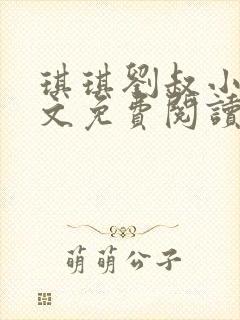 琪琪劉叔小
文免費閱讀
萌萌公子